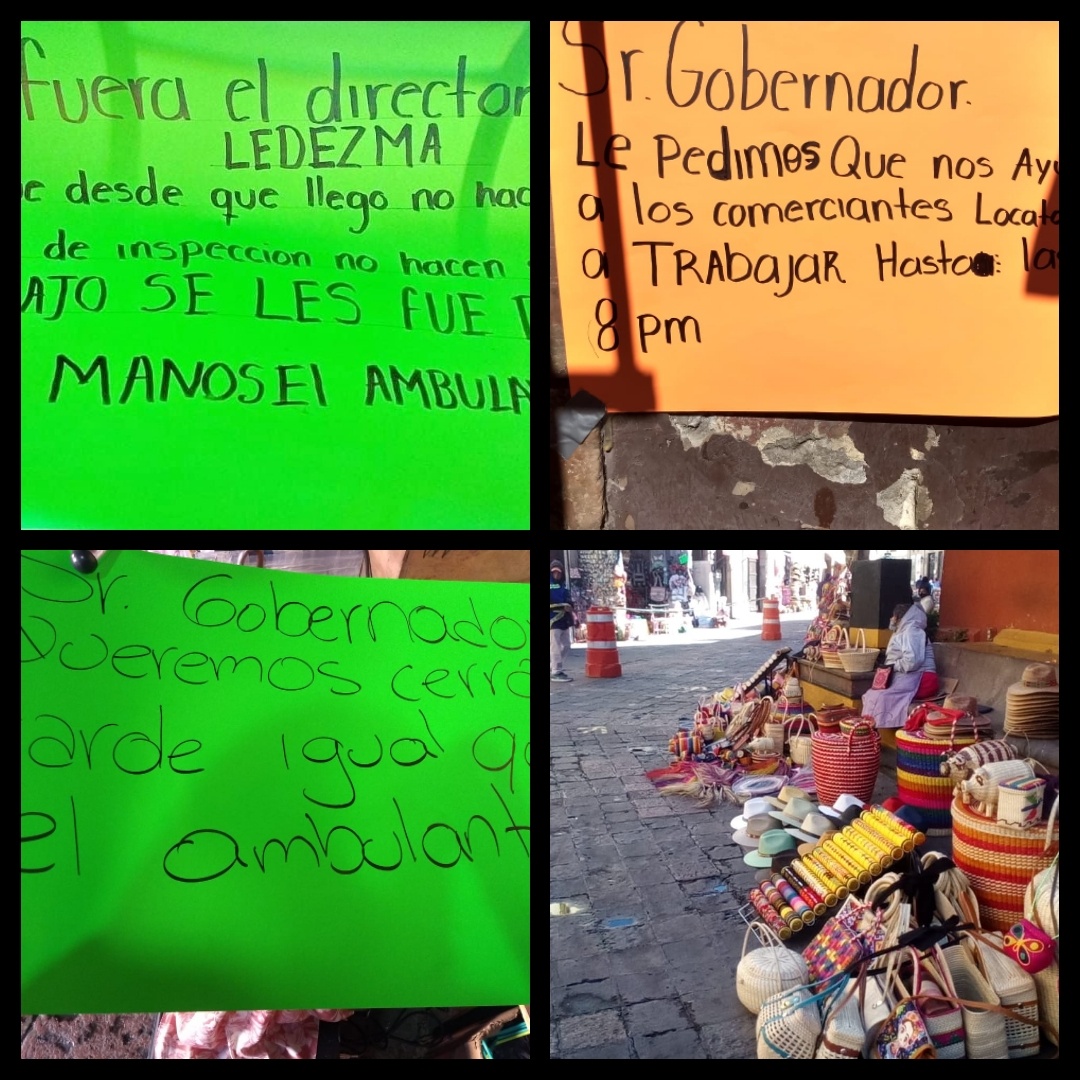 fuera el director
LEDEZMA
e desde que llego no hac
de inspeccion no hacen
AJO SE LES FUE D
MANOS El AMBULA
Sr. Gobernador.
Le Pedimos Que nos Ayu
a los comerciantes Locata
a TRAbajAR Hasta: las
8 pm
Sr. Gobernado
Queremos cerra
arde igual q
el ambulant